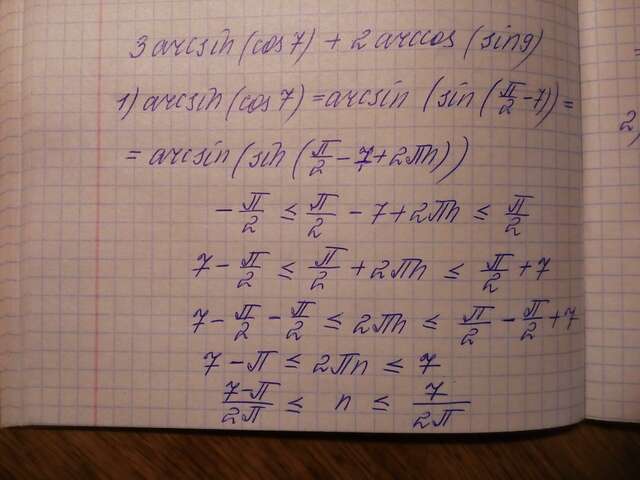 3 arcsin (cos 7) + 2 arccos (sin 9)
1) arcsin (cos 7) = arcsin (sin (π/2 - 7)) =
= arcsin (sin (π/2 - 7 + 2πn))
-π/2 ≤ π/2 - 7 + 2πn ≤ π/2
7 - π/2 ≤ π/2 + 2πn ≤ π/2 + 7
7 - π/2 - π/2 ≤ 2πn ≤ π/2 - π/2 + 7
7 - π ≤ 2πn ≤ 7
(7-π)/2π ≤ n ≤ 7/2π
2)